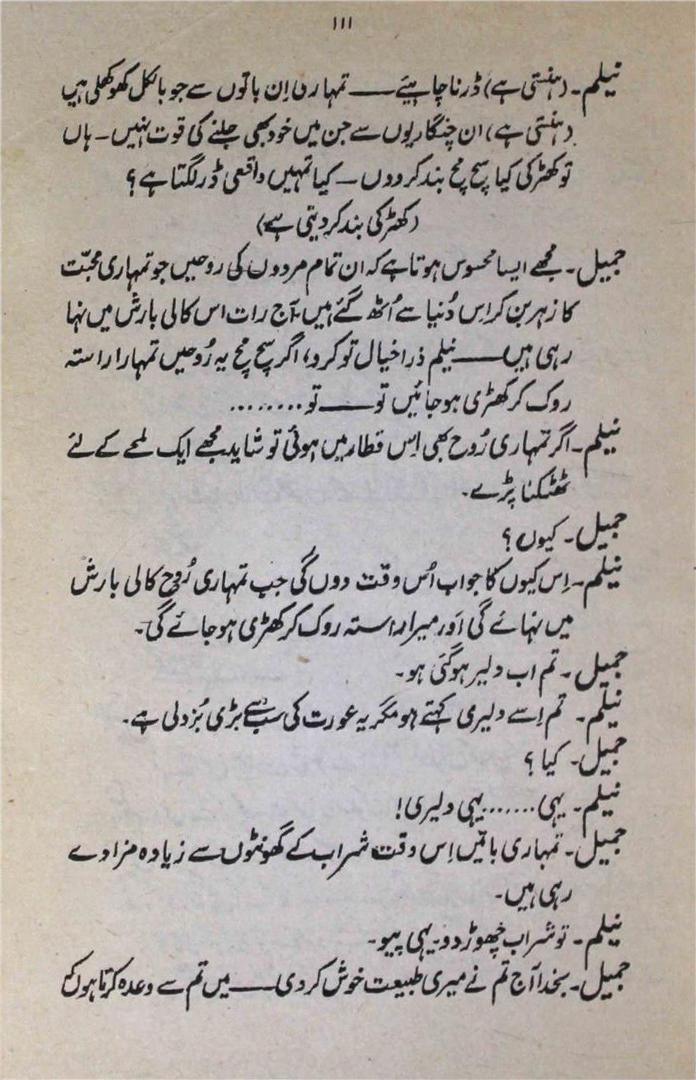 ۱۱۱
نیلم۔ (ہنستی ہے) ڈرنا چاہیئے ــــ تمہاری اِن باتوں سے جو بالکل کھوکھلی ہیں
(ہنستی ہے) ان چنگاریوں سے جن میں خود بھی جلنے کی قوت نہیں ۔ ہاں
تو کھڑکی کیا سچ مچ بند کردوں ۔ کیا تمہیں واقعی ڈر لگتا ہے ؟
(کھڑکی بند کر دیتی ہے)
جمیل۔ مجھے ایسا محسوس ہوتا ہے کہ ان تمام مردوں کی روحیں جو تمہاری محبّت
کا زہر بن کر اِس دُنیا سے اُٹھ گئے ہیں۔ آج رات اس کالی بارش میں نہا
رہی ہیں ــــ نیلم ذرا خیال تو کرو، اگر سچ مچ یہ رُوحیں تمہارا راستہ
روک کر کھڑی ہو جائیں تو ــــ تو ........
نیلم۔ اگر تمہاری رُوح بھی اِس قطار میں ہوئی تو شاید مجھے ایک لمحے کے لئے
ٹھٹکنا پڑے۔
جمیل۔ کیوں ؟
نیلم۔ اِس کیوں کا جواب اُس وقت دوں گی جب تمہاری رُوح کالی بارش
میں نہائے گی اور میرا راستہ روک کر کھڑی ہو جائے گی۔
جمیل۔ تم اب دلیر ہو گئی ہو۔
نیلم۔ تم اِسے دلیری کہتے ہو مگر یہ عورت کی سب سے بڑی بُزدلی ہے۔
جمیل۔ کیا ؟
نیلم۔ یہی ....... یہی دلیری!
جمیل۔ تمہاری باتیں اِس وقت شراب کے گھونٹوں سے زیادہ مزا دے
رہی ہیں۔
نیلم۔ تو شراب چھوڑ دو۔ یہی پیو۔
جمیل۔ بخدا آج تم نے میری طبیعت خوش کر دی ــــ میں تم سے وعدہ کرتا ہوں کہ